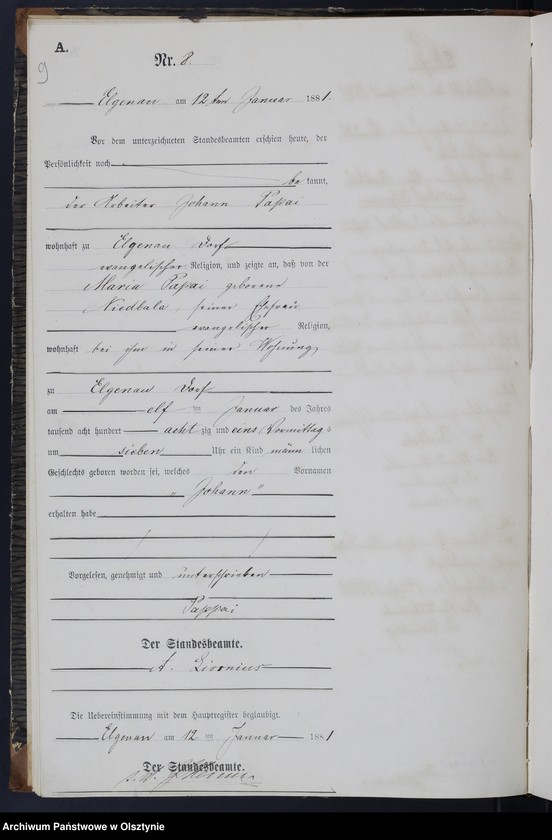 A.
9
Nr. 8.
Elgenau am 12 ten Januar 1881.
Vor dem unterzeichneten Standesbeamten erschien heute, der
Persönlichkeit nach
be kannt,
der Arbeiter Johann Papai
wohnhaft zu Elgenau Dorf
evangelischer Religion, und zeigte an, daß von der
Maria Papai geborene
Niedbala, seiner Ehefrau
evangelischer Religion,
wohnhaft bei ihm in seiner Wohnung,
zu Elgenau Dorf
am elf ten Januar des Jahres
tausend acht hundert acht zig und eins Vormittag s
um sieben Uhr ein Kind männ lichen
Geschlechts geboren worden sei, welches den Vornamen
„Johann“
erhalten habe
Vorgelesen, genehmigt und unterschrieben
Pappai
Der Standesbeamte.
A.
Die Uebereinstimmung mit dem Hauptregister beglaubigt.
Elgenau am 12 ten Januar 1881
Der Standesbeamte.
Archiwum Państwowe w Olsztynie